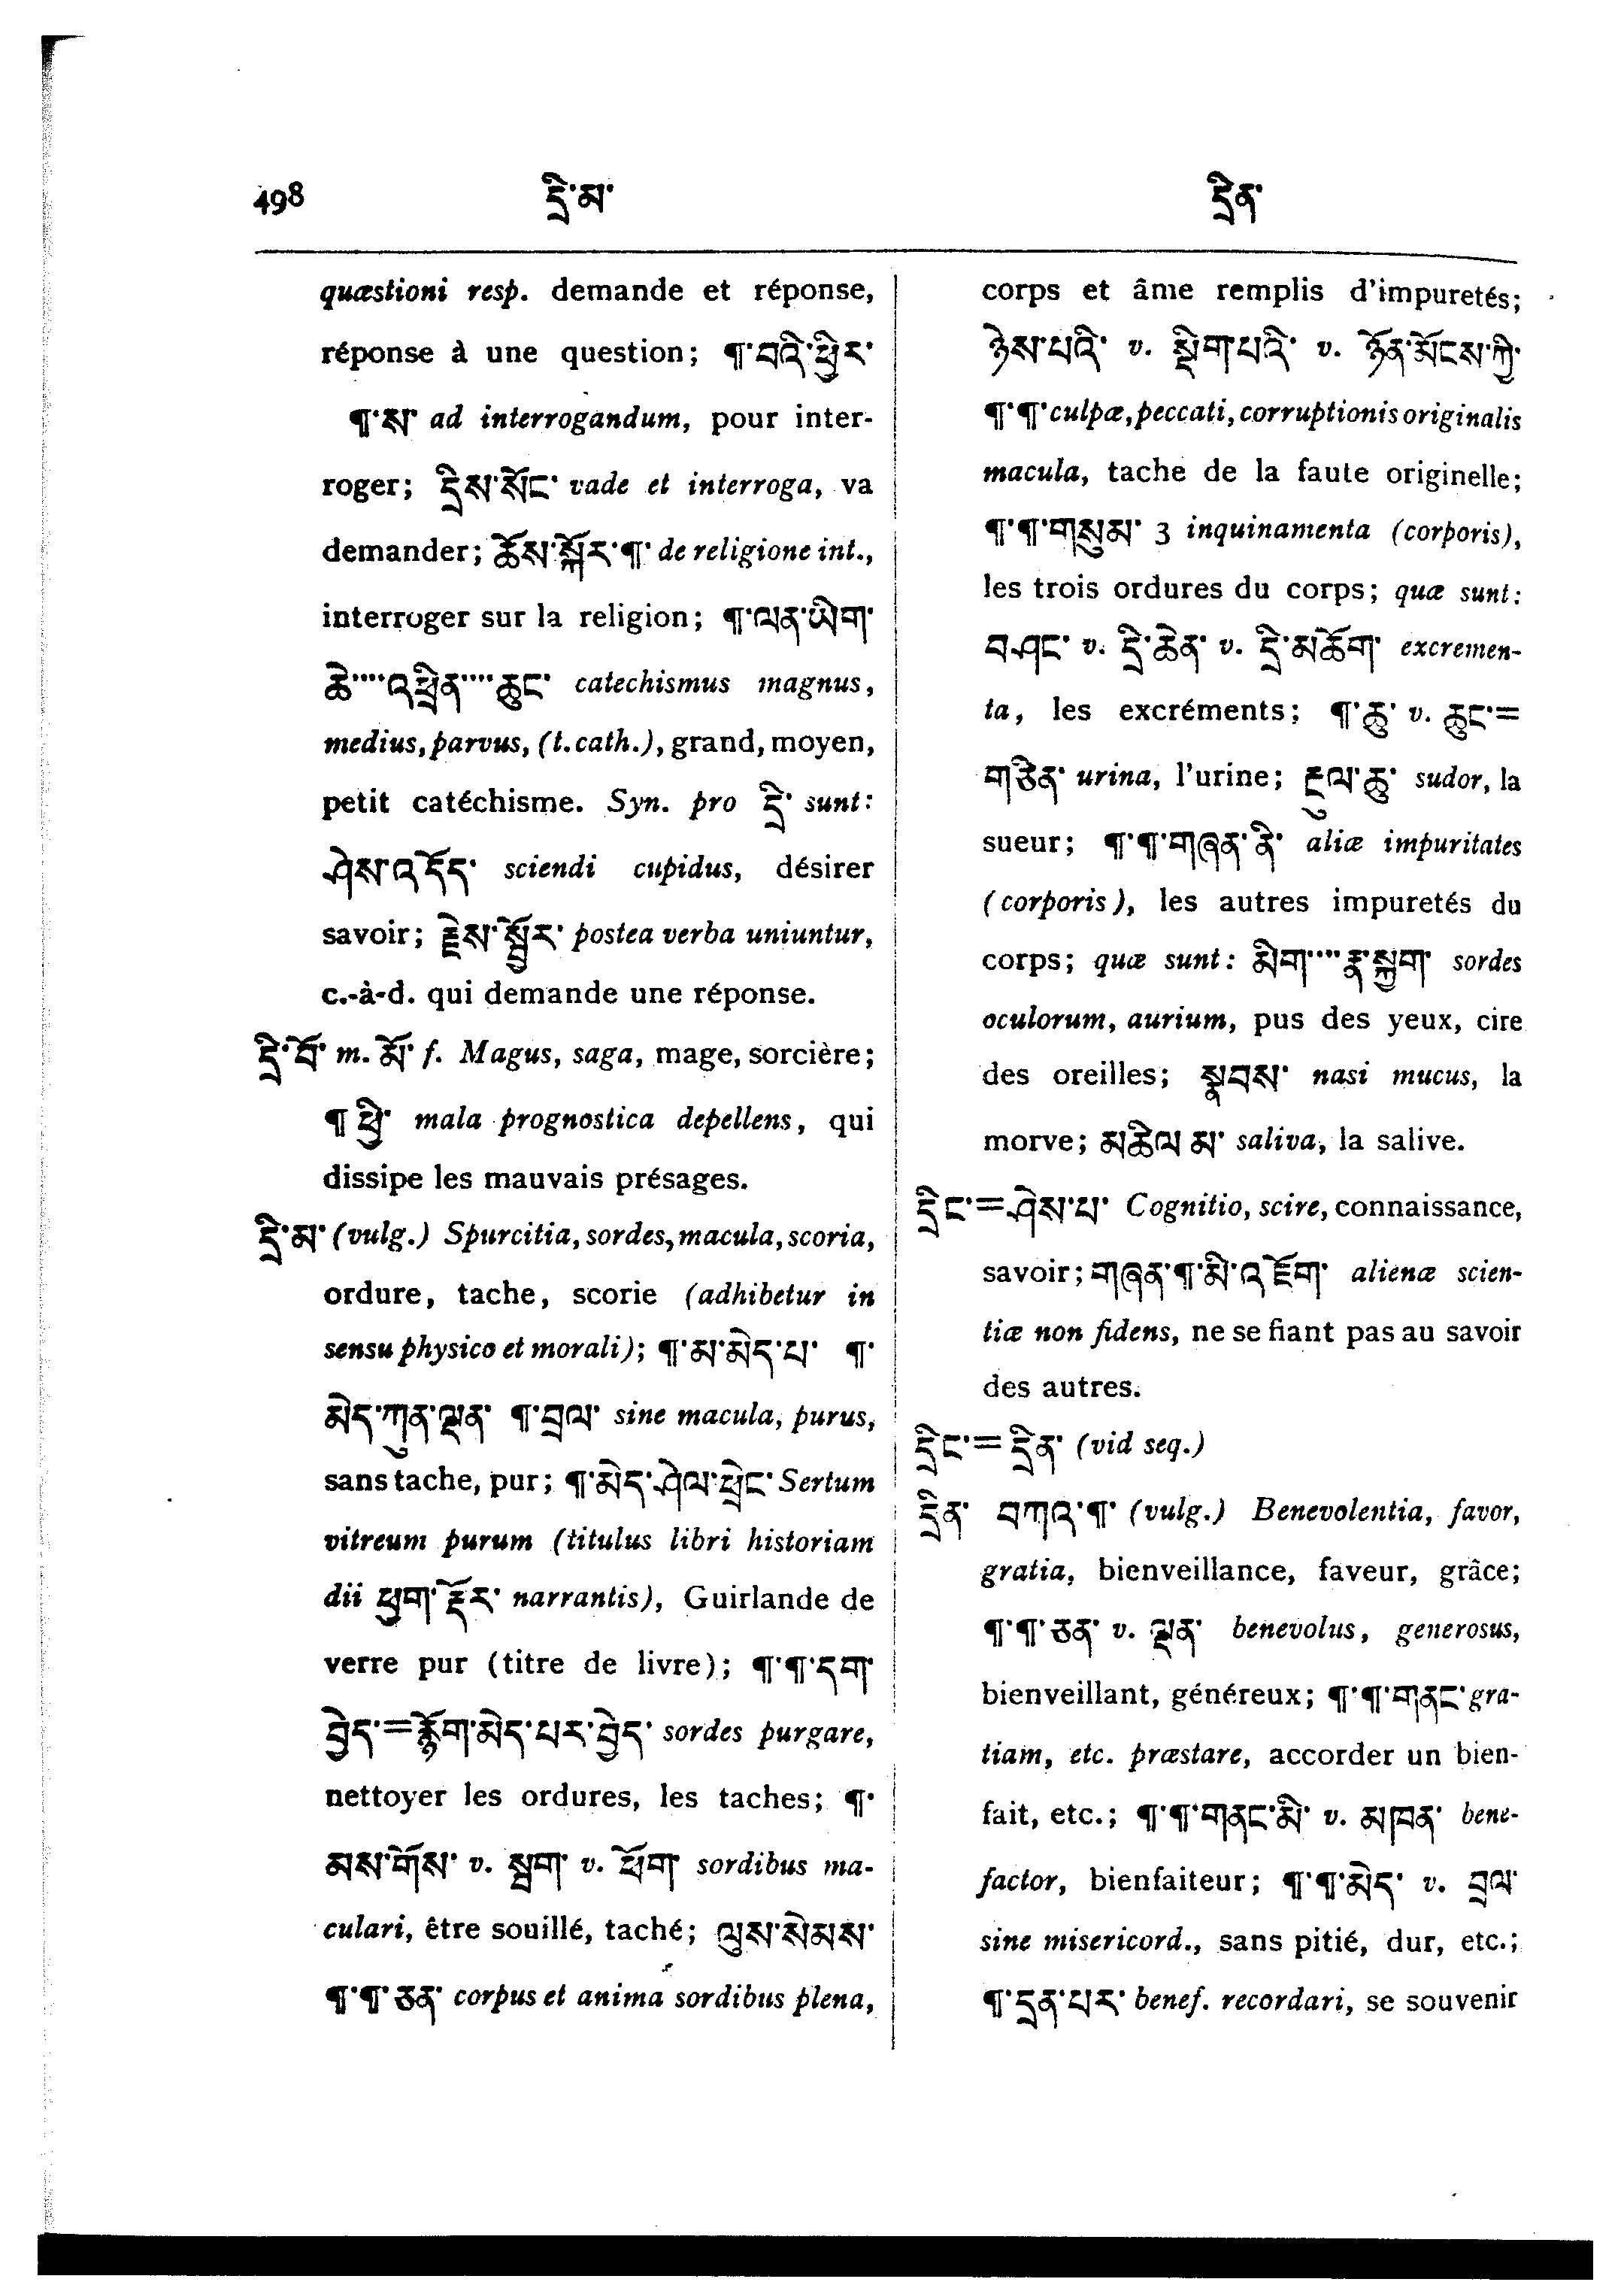 498 དྲི་མ་ དྲིན་
quæstioni resp. demande et réponse,
réponse à une question; ¶་བའི་ཕྱིར་
¶་ས་ ad interrogandum, pour inter-
roger; དྲིས་སོང་ vade et interroga, va
demander; ཆོས་སྐོར་¶་ de religione int.,
interroger sur la religion; ¶་ལན་ཡིག་
ཆེ་་་་འཕྲིན་་་་ཆུང་ catechismus magnus,
medius, parvus, (t. cath.), grand, moyen,
petit catéchisme. Syn. pro དྲི་ sunt:
ཤེས་འདོད་ sciendi cupidus, désirer
savoir; རྗེས་སྦྱོར་ postea verba uniuntur,
c.-à-d. qui demande une réponse.
དྲི་བོ་ m. མོ་ f. Magus, saga, mage, sorcière;
¶ ཕྱི་ mala prognostica depellens, qui
dissipe les mauvais présages.
དྲི་མ་ (vulg.) Spurcitia, sordes, macula, scoria,
ordure, tache, scorie (adhibetur in
sensu physico et morali); ¶་མ་མེད་པ་ ¶་
མེད་ཀུན་ལྡན་ ¶་བྲལ་ sine macula, purus,
sans tache, pur; ¶་མེད་ཤེལ་ཕྲེང་ Sertum
vitreum purum (titulus libri historiam
dii ཕྱག་རྡོར་ narrantis), Guirlande de
verre pur (titre de livre); ¶་¶་དག་
བྱེད་=རྙོག་མེད་པར་བྱེད་ sordes purgare,
nettoyer les ordures, les taches; ¶་
མས་གོས་ v. སྦག་ v. ཕོག་ sordibus ma-
culari, être souillé, taché; ལུས་སེམས་
¶་¶་ཅན་ corpus et anima sordibus plena,
corps et âme remplis d'impuretés;
ཉེས་པའི་ v. སྡིག་པའི་ v. ཉོན་མོངས་ཀྱི་
¶་¶་ culpæ, peccati, corruptionis originalis
macula, tache de la faute originelle;
¶་¶་གསུམ་ 3 inquinamenta (corporis),
les trois ordures du corps; quæ sunt:
བཤང་ v. དྲི་ཆེན་ v. དྲི་མཆོག་ excremen-
ta, les excréments; ¶་ཆུ་ v. ཆུང་=
གཅིན་ urina, l'urine; རྔུལ་ཆུ་ sudor, la
sueur; ¶་¶་གཞན་ནི་ aliæ impuritates
(corporis), les autres impuretés du
corps; quæ sunt: མིག་་་་རྣ་སྐྱག་ sordes
oculorum, aurium, pus des yeux, cire
des oreilles; སྣབས་ nasi mucus, la
morve; མཆིལ མ་ saliva, la salive.
དྲིང་=ཤེས་པ་ Cognitio, scire, connaissance,
savoir; གཞན་¶་མི་འཇོག་ alienæ scien-
tiæ non fidens, ne se fiant pas au savoir
des autres.
དྲིང་=དྲིན་ (vid seq.)
དྲིན་ བཀའ་¶་ (vulg.) Benevolentia, favor,
gratia, bienveillance, faveur, grâce;
¶་¶་ཅན་ v. ལྡན་ benevolus, generosus,
bienveillant, généreux; ¶་¶་གནང་ gra-
tiam, etc. præstare, accorder un bien-
fait, etc.; ¶་¶་གནང་མི་ v. མཁན་ bene-
factor, bienfaiteur; ¶་¶་མེད་ v. བྲལ་
sine misericord., sans pitié, dur, etc.;
¶་དྲན་པར་ benef. recordari, se souvenir